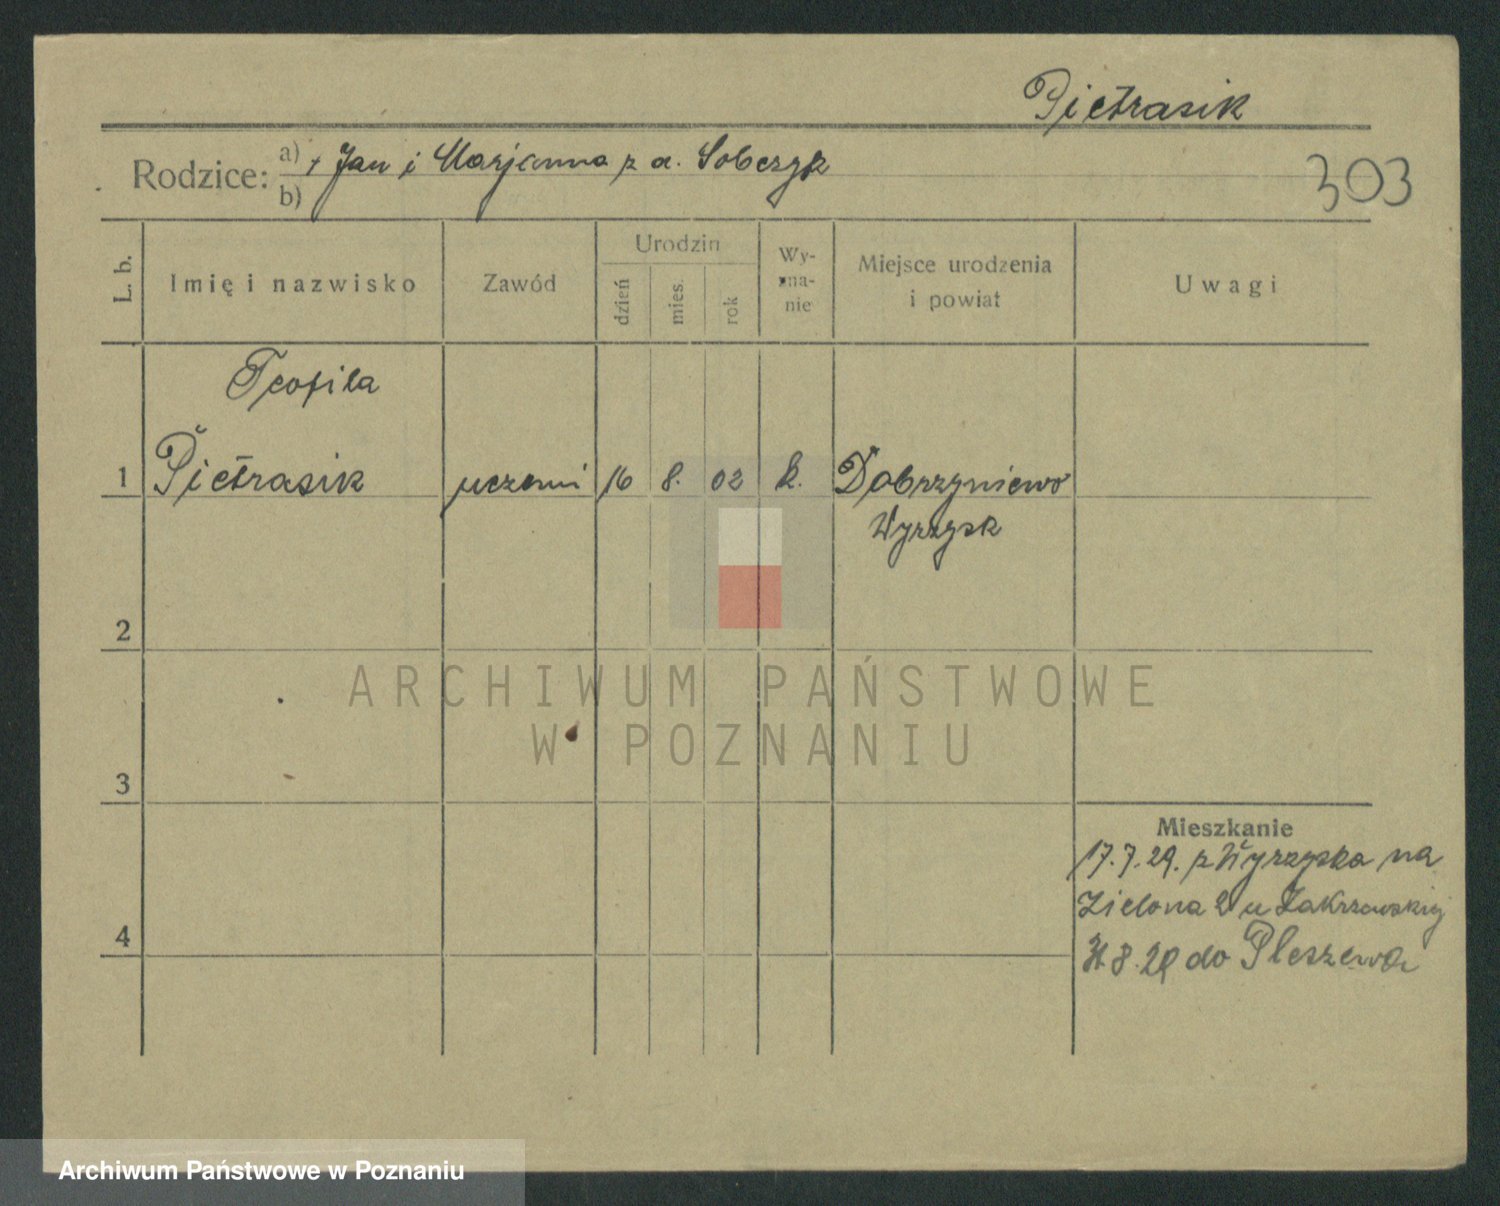 Pietrasik
Rodzice: a) + Jan i Marjanna z d. Sobczyk
b)
303
L. b.
Imię i nazwisko
Zawód
Urodzin
dzień
mies.
rok
Wy-
zna-
nie
Miejsce urodzenia
i powiat
Uwagi
Teofila
1 Pietrasik uczenni 16 8. 02 k. Dobrzyniewo
Wyrzysk
2
3
4
Mieszkanie
17.7.29. z Wyrzyska na
Zielona 2 u Zakrzewskiej
8.29 do Pleszewa
ARCHIWUM PAŃSTWOWE
W POZNANIU
Archiwum Państwowe w Poznaniu